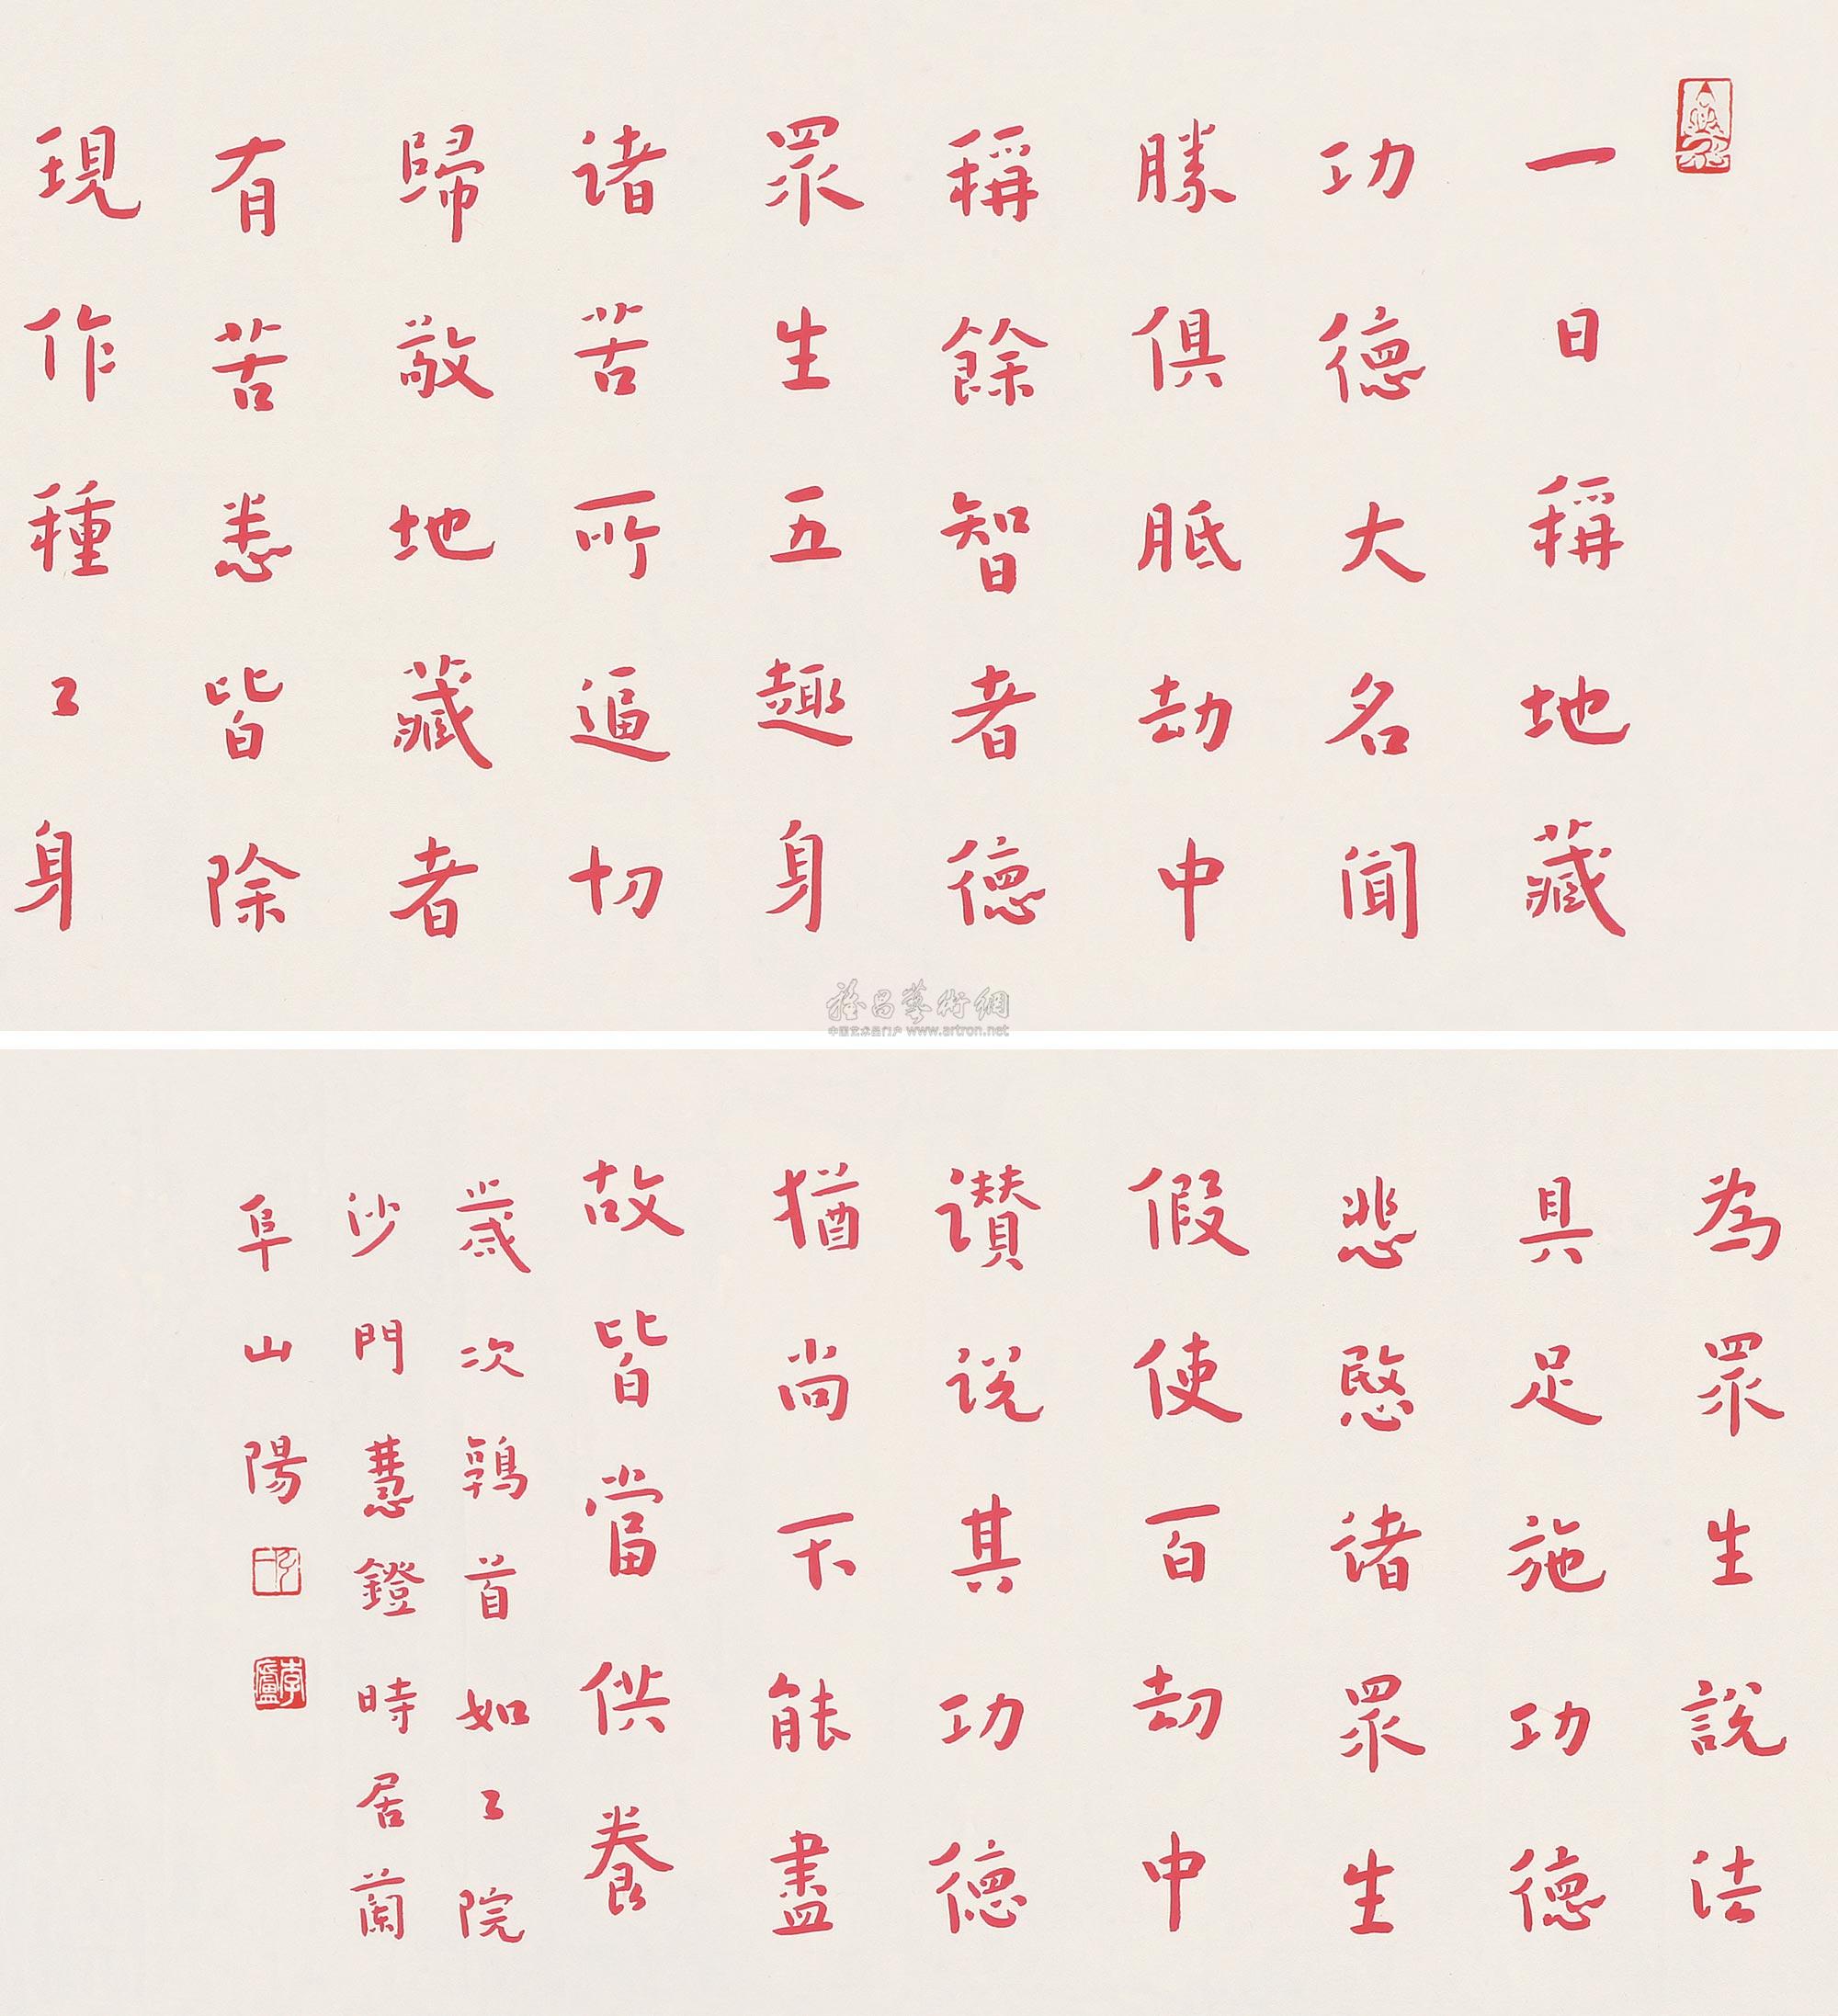 一日稱地藏
功德大名聞
勝俱胝劫中
稱餘智者德
眾生五趣身
诸苦所逼切
歸敬地藏者
有苦悉皆除
現作種〻身
為眾生說法
具足施功德
悲愍诸眾生
假使百劫中
讃说其功德
猶尚不能盡
故皆當供養
歲次鶉首如〻院
沙門慧鐙時居蘭
阜山陽
雅昌藝術網
中国艺术品门户 www.artron.net